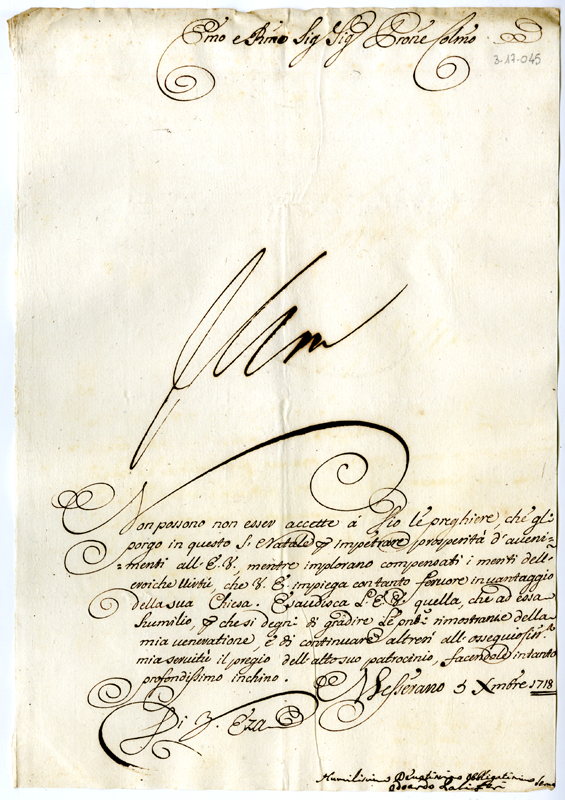 Emo e Rmo Sig Sig Prone Colmo
3-17-045
Non possono non esser accette á Dio le preghiere, che gl:
porgo in questo S. Natale p impetrare prosperità d'avveni:
:menti all' E.V. mentre implorano compensati i meriti dell'
eroiche Virtù che V. E. impiega con tanto fervore in vantaggio
della sua Chiesa. Esaudisca L'E.V. quella, che ad essa
humilio, p che si degni di gradire le pnti rimostranze della
mia veneratione, e di continuare altresi all' ossequiosissma
mia servitù il pregio dell' alto suo patrocinio, facendole intanto
profondissimo inchino.
Messerano 5 Xmbre 1718
Di V. Eza
Humilissimo Devotissimo Obbligatissimo
Odoardo